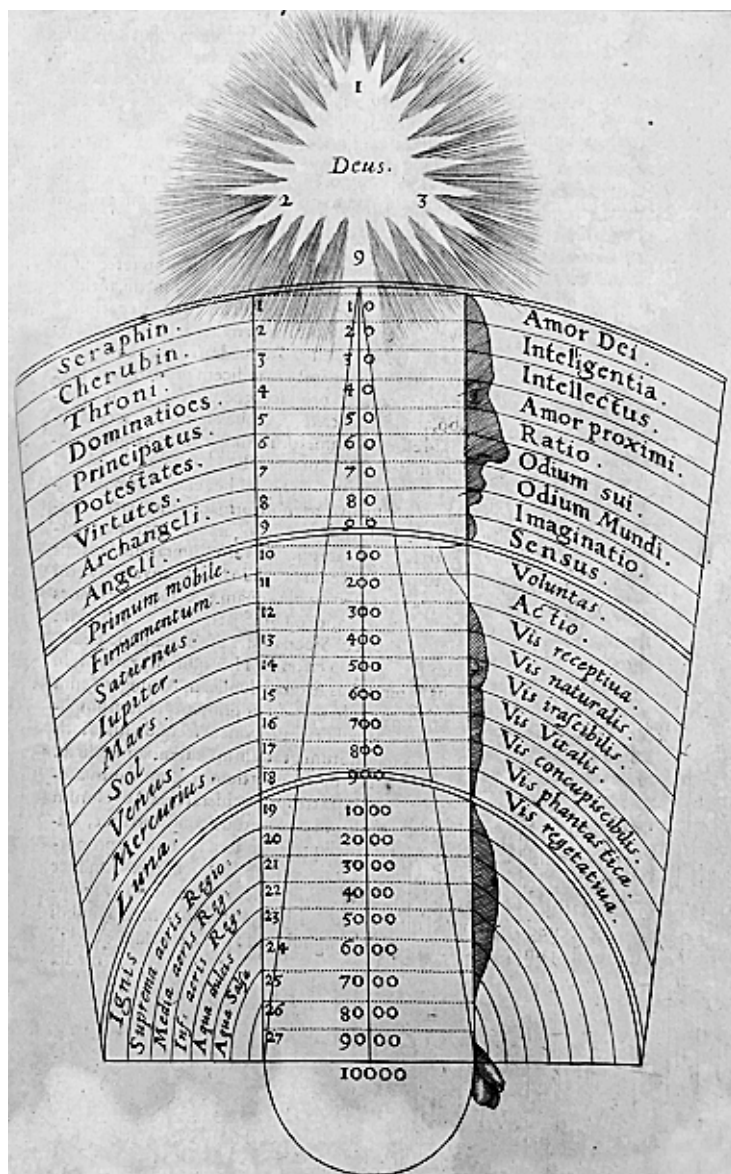 1
Deus.
2 3
9
Seraphin.
Cherubin.
Throni.
Dominatioes.
Principatus.
Potestates.
Virtutes.
Archangeli.
Angeli.
Primum mobile.
Firmamentum.
Saturnus.
Iupiter.
Mars.
Sol
Venus.
Mercurius.
Luna.
Ignis
Suprema aeris Regio:
Media aeris Reg:
Inf: aeris Reg:
Aqua dulcis
Aqua Salsa
1 10
2 20
3 30
4 40
5 50
6 60
7 70
8 80
9 90
10 100
11 200
12 300
13 400
14 500
15 600
16 700
17 800
18 900
19 1000
20 2000
21 3000
22 4000
23 5000
24 6000
25 7000
26 8000
27 9000
10000
Amor Dei.
Inteligentia.
Intellectus.
Amor proximi.
Ratio.
Odium sui.
Odium Mundi.
Imaginatio.
Sensus.
Voluntas.
Actio.
Vis receptiua.
Vis naturalis.
Vis irascibilis.
Vis Vitalis.
Vis concupiscibilis.
Vis phantastica.
Vis vegetatiua.